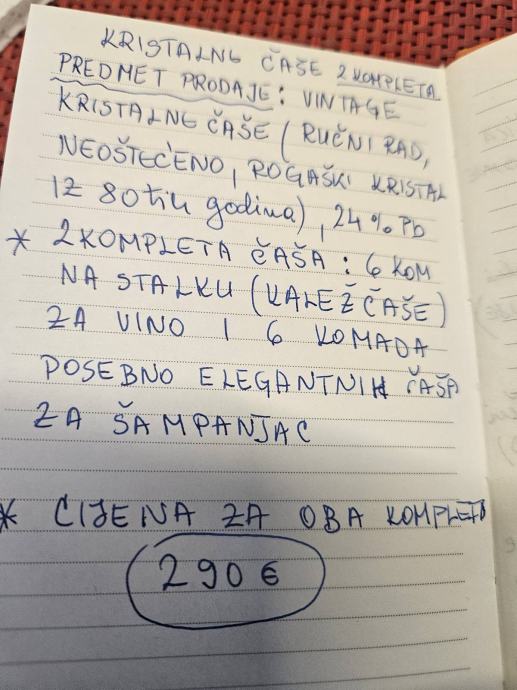 KRISTALNE ČAŠE 2 KOMPLETA
PREDMET PRODAJE: VINTAGE
KRISTALNE ČAŠE (RUČNI RAD,
NEOŠTEĆENO, ROGAŠKI KRISTAL
IZ 80tih godina), 24% Pb
* 2 KOMPLETA ČAŠA: 6 KOM
NA STALKU (KALEŽ ČAŠE)
ZA VINO I 6 KOMADA
POSEBNO ELEGANTNIH ČAŠA
ZA ŠAMPANJAC
* CIJENA ZA OBA KOMPLETA
290 €